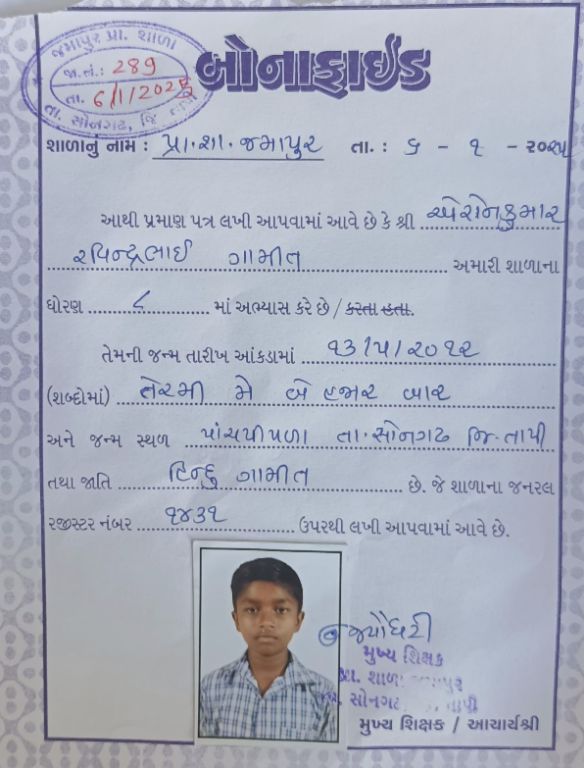 જમાપુર પ્રા. શાળા
જા.નં.: 289
તા. 6/1/2025
તા. સોનગઢ, જિ. તાપી
બોનાફાઇડ
શાળાનું નામ : પ્રા.શા. જમાપુર તા. : ૬ - ૧ - ૨૦૨૫
આથી પ્રમાણ પત્ર લખી આપવામાં આવે છે કે શ્રી એરોનકુમાર
રવિન્દ્રભાઈ ગામીત અમારી શાળાના
ધોરણ ૮ માં અભ્યાસ કરે છે / કરતા હતા.
તેમની જન્મ તારીખ આંકડામાં ૧૩/૫/૨૦૧૨
(શબ્દોમાં) તેરમી મે બે હજાર બાર
અને જન્મ સ્થળ પાંચપીપળા તા.સોનગઢ જિ.તાપી
તથા જાતિ હિન્દુ ગામીત છે. જે શાળાના જનરલ
રજીસ્ટર નંબર ૧૪૩૧ ઉપરથી લખી આપવામાં આવે છે.
મુખ્ય શિક્ષક
પ્રા. શાળા જમાપુર
તા. સોનગઢ તાપી
મુખ્ય શિક્ષક / આચાર્યશ્રી